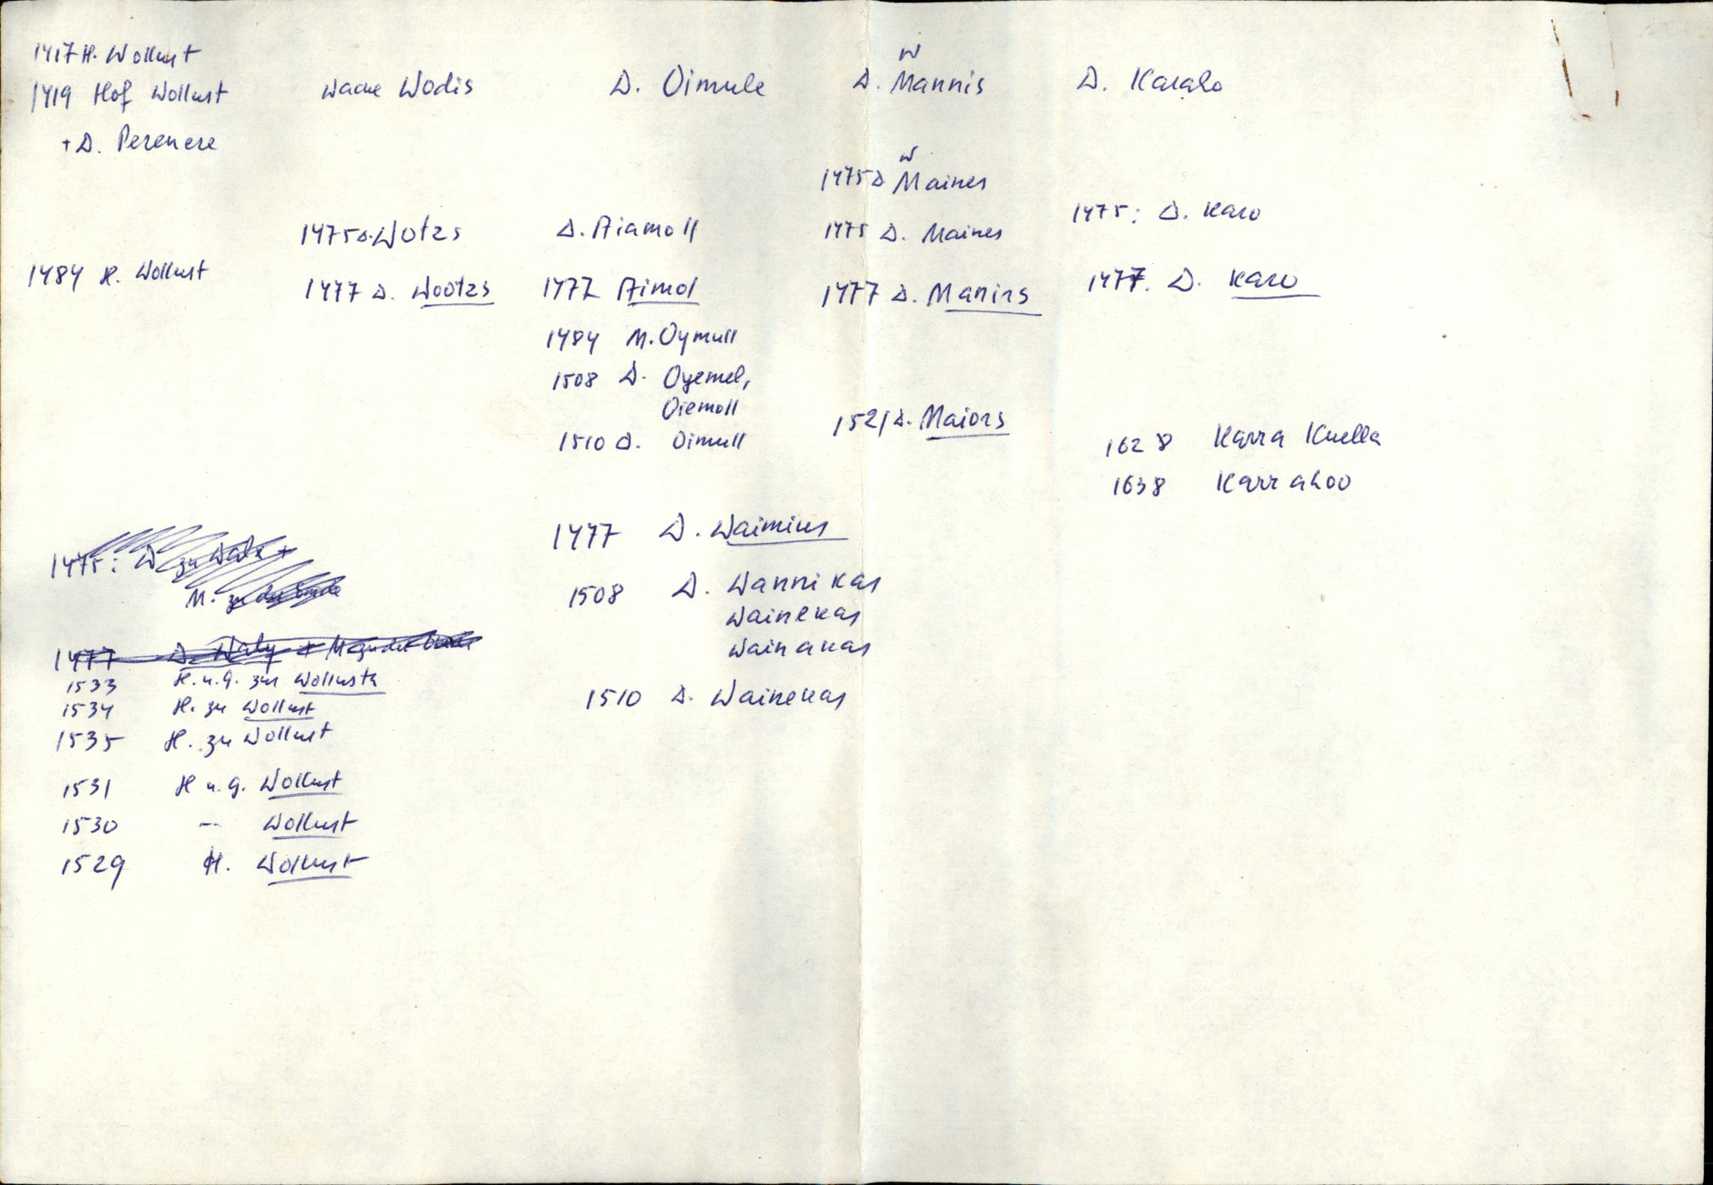 1417 H. Wollust
1419 Hof Wollust
+ D. Perenere
1484 H. Wollust
wacke Wodis
1475 D. Wotzs
1477 D. Wootzs
D. Oimule
D. Aiamoll
1477 Aimol
1484 M. Oymull
1508 D. Oyemel,
Oiemoll
1510 D. Oimull
W
D. Mannis
W
1475 D Maines
1475 D. Maines
1477 D. Manirs
1521 D. Maiors
D. Karaho
1475: D. Karo
1477. D. Karo
1628 Karra Kuella
1638 Karrahoo
1477 D. Waimius
1508 D. Wannikas
Wainekas
Wainakas
1510 D. Wainekas
1475: D zu
M. zu
1477 D. Waly +
1533 H. u. G. zur Wollusta
1534 H. zu Wollust
1535 H. zu Wollust
1531 H u. G. Wollust
1530 – Wollust
1529 H. Wollust